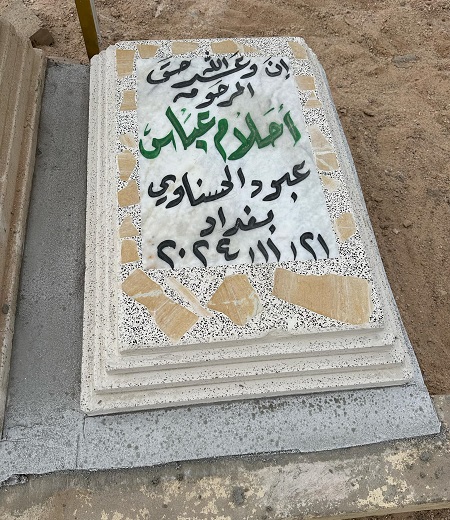 إن وعد الله حق
المرحومه
أحلام عباس
عبود الحسناوي
بغداد
٢٠٢٤/١١/٢١